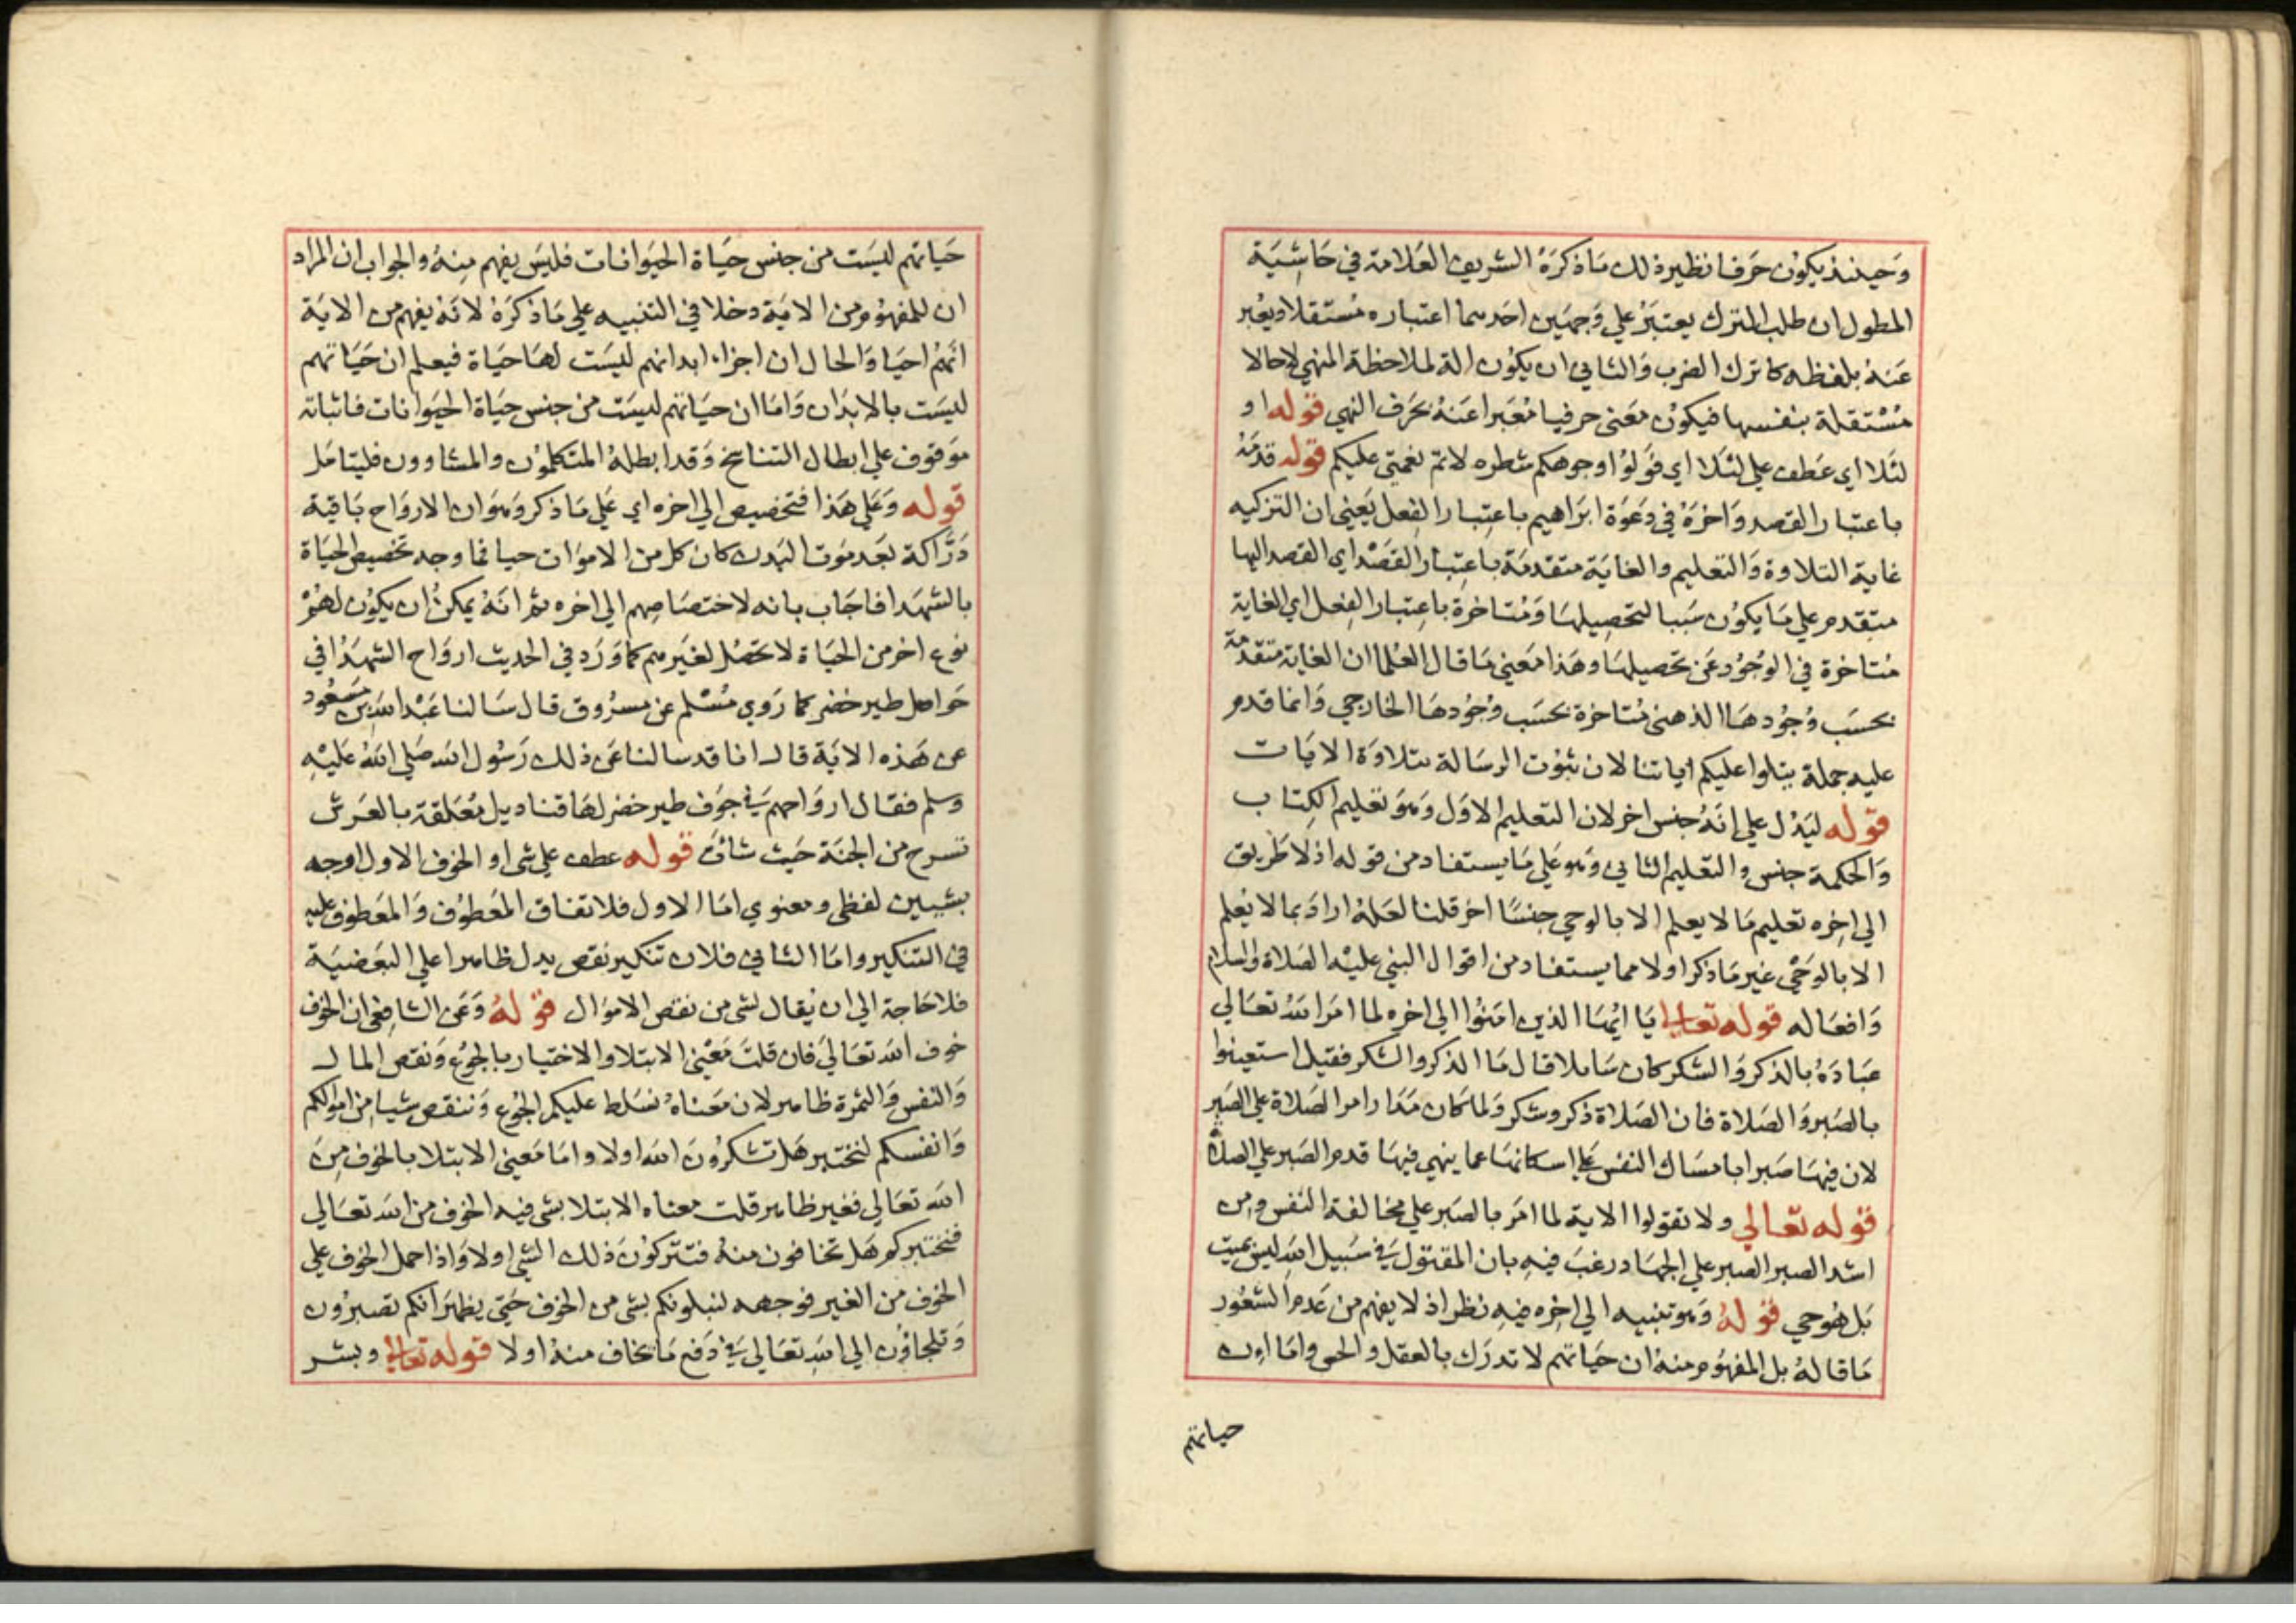 وَحينئذ يكوُن حَرفا نظير ذلك مَا ذكرَهُ الشريف العَلامة في حَاشِيَة
المطول ان طلب الترك يعتبَرُ علي وَجهَين احَدهما اعتباره مُستَقلا ويعُبر
عَنهُ بلفظه كاترك الضرب وَالثاني ان يكوُن الة لملاحظة المنهي لاحالا
مُسْتقلة بنفسها فيكوُن مَعَني حرفيا مُعَبرا عَنهُ بحَرف النهي قوله او
لئلا اي عَطف علي لئَلا اي فَولوُا وجوهكم شطره لاتم نعمتي عليكم قوله قدمَهُ
باعتبار القصد وَاخرَهُ في دعَوَة ابرَاهيم باعِتبار الفِعل يَعَني ان التزكيه
غاية التلاوة وَالتعَليم والغايَة متقدمَة باعِتبَار القصَد اي القصد اليها
متقدم علي مَا يكوُن سَببا لتحصِيلهَا وَمُتاخرة باعِتبار الفِعل اي الغاية
مُتاخرة في الوجُود عَن تحصيلهَا وهَذا مَعني مَا قال العُلما ان الغاية متقدمَة
بحسَب وُجوُدهَا الذهني مُتاخرة بحسَب وُجوُدهَا الخارجي وَانما قدم
عليه جملة يتلوا عليكم اياتنا لان ثبوُت الرسَالة بتلاوَة الايَات
قوله ليَدُل علي انَهُ جنس اخر لان التعليم الاوَل وَهوَ تعَليم الكِتاب
وَالحكمة جنس والتعَليم الثاني وَهو عَلي مَا يستفاد من قوله اذ لا طَريق
الي اخِره تعليم مَا لا يعلم الا بالوحي جنسًا اخر قلنا لعَلهُ ارادَ بما لا يُعلم
الا بالوَحْي غير مَا ذكر اولا مما يستفاد من اقوال النبي عليْه الصَلاة والسلام
وَافعَاله قوله تعَالي يَا ايُهَا الذين امَنوُا الي اخره لما امَر اللهُ تعَالي
عبَادَهُ بالذكر وَالشكر كان سَايلا قال مَا الذكر والشكر فقيل استعينوا
بالصَبر وَالصَلاة فان الصَلاة ذكر وشكر وَلما كان مَدَار امر الصَلاة علي الصَبر
لان فيهَا صَبرا بامسَاك النفس عَلي اسكانهَا عما ينهي فيهَا قدم الصَبر علي الصلاة
قوله تعَالي ولا تقولوا الاية لما امَر بالصَبر علي مخالفة النفس ومِن
اشد الصبر الصبر علي الجهَاد رغبَ فيِه بان المقتول في سَبيل اللهِ ليس بميت
بَل هُو حي قولهُ وَهو تنبيه الي اخِره فيِه نظر اذ لا يفهم من عَدم الشعُور
مَا قالهُ بل المفهوُم منهُ ان حَياتهم لا تدرَك بالعقل والحس وامَا ان
حياتهم
حَياتهم ليسَت من جنس حيَاة الحيَوانات فليَس يفهم مِنهُ والجوَاب ان المراد
ان للمفهوُم من الايَة دخلا في التنبيه علي مَا ذكرَهُ لانهُ يفهم من الايَة
انهُم احيَا وَالحال ان اجزاء ابدانهم ليسَت لهَا حيَاة فيعلم ان حَيَاتهم
ليسَت بالابدَان وَامَا ان حيَاتهم ليسَت من جنس حيَاة الحيَوانات فاثباته
مَوقوف علي ابطال التناسخ وَقد ابطلهُ المتكلموُن والمشاوون فليتامَل
قوله وَعَلي هَذا فتخصِيص الي اخره اي عَلي مَا ذكر وَهوَ ان الارواح بَاقية
دَرَّاكة بَعَد مَوت البَدن كان كل من الاموَات حيا فما وجه تخَصيص الحيَاة
بالشهدَا فاجَاب بانه لاختصَاصِهم الي اخره ثم انهُ يمكنُ ان يكوُن لهُمْ
نوع اخر من الحيَاة لا تحَصُل لغيَرهم كما وَرَد في الحديث ارواح الشهدَا في
حَواصل طير خضر كما رَوَي مُسْلم عن مسرُوق قال سَالنا عَبْد اللهِ بن مسَعُود
عن هَذه الايَة قال انا قد سالنا عَن ذلك رَسُول الله صَلي اللهُ عَليْهِ
وسلم فقال اروَاحهم في جَوف طير خضر لهَا قناديل مُعَلقة بالعَرش
تسرح من الجنة حَيث شائت قوله عطف علي شي او الخوف الاول اوجه
بشيين لفظي ومعنوي امَا الاول فلاتفاق المَعَطوُف وَالمعَطوف عليه
في التنكير وامَا الثاني فلان تنكير نقص يدل ظاهرا علي البَعَضيَة
فلا حَاجة الي ان يُقال لشي من نقص الاموَال قولهُ وَعَن الشافِعي ان الخوف
خوف الله تعَالي فان قلتَ مَعْني الابتلا والاختيار بالجوُع وَنقص المال
وَالنفس وَالثمَرة ظاهر لان مَعَناهُ نسَلط عليكم الجُوع وَننقص شيا من اموالكم
وَانفسكم لنختبر هَل تشكرُونَ الله اولا وامَا مَعَني الابتلا بالخوف مِنَ
الله تعَالي فغير ظاهر قلت معناه الابتلا بشي فيه الخوف من الله تعَالي
فنختبركم هَل تخافون منهُ فتتركوُنَ ذلك الشي اولا وَاذا حمل الخوف علي
الخوف من الغير فوجهه لنبلونكم بشي من الخوف حَتي يظهَرَ انكم تصبرُون
وَتلجاؤُن الي اللهِ تعَالي في دَفع مَا يخاف منهُ اولا قوله تعَالي وبشر